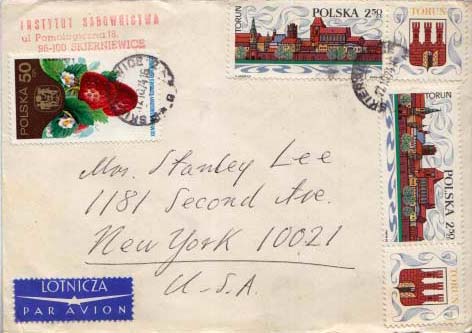 INSTYTUT SADOWNICTWA
ul Pomologiczna 18,
96-100 SKIERNIEWICE
POLSKA 50
TORUŃ
POLSKA 2,50
TORUŃ
TORUŃ
POLSKA 2,50
TORUŃ
Mrs. Stanley Lee
1181 Second Ave.
New York 10021
U.S.A.
LOTNICZA
PAR AVION